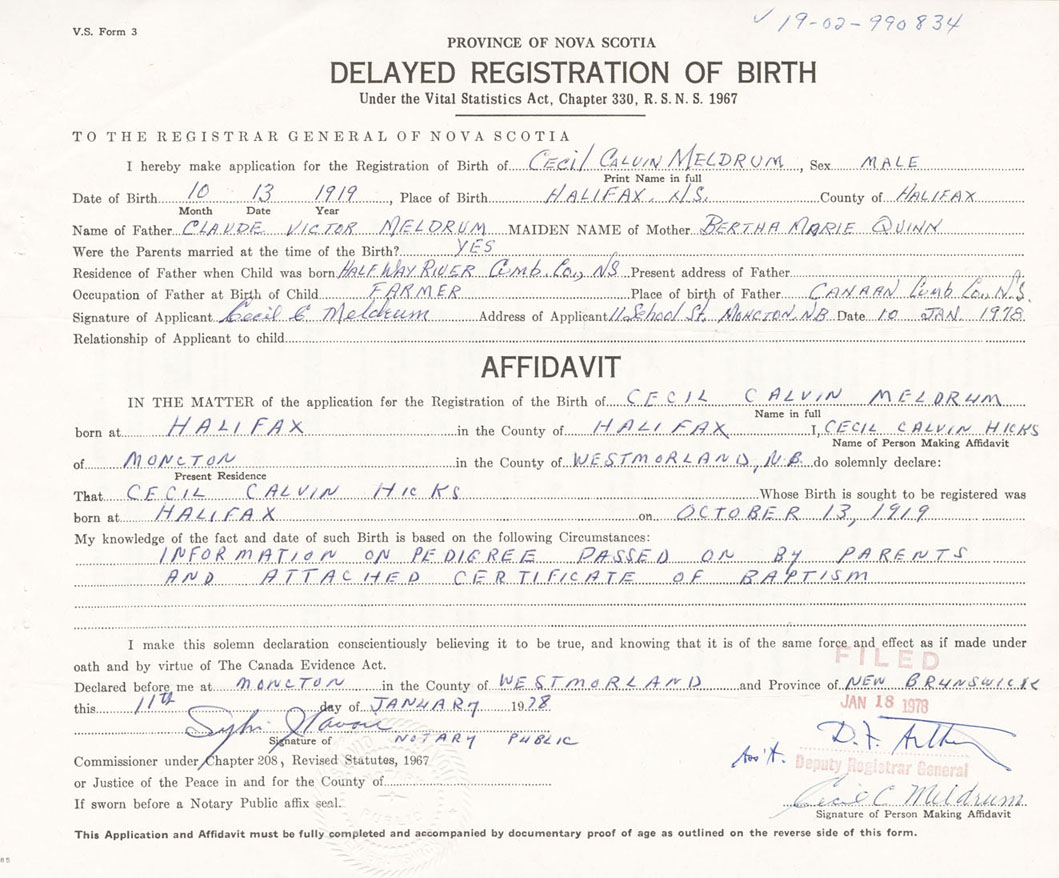 V.S. Form 3
✓ 19-02-990834
PROVINCE OF NOVA SCOTIA
DELAYED REGISTRATION OF BIRTH
Under the Vital Statistics Act, Chapter 330, R.S.N.S. 1967
TO THE REGISTRAR GENERAL OF NOVA SCOTIA
I hereby make application for the Registration of Birth of CECIL CALVIN MELDRUM, Sex MALE
Print Name in full
Date of Birth 10 13 1919, Place of Birth HALIFAX, N.S. County of HALIFAX
Month Date Year
Name of Father CLAUDE VICTOR MELDRUM MAIDEN NAME of Mother BERTHA MARIE QUINN
Were the Parents married at the time of the Birth? YES
Residence of Father when Child was born HALFWAY RIVER Cumb. Co., NS Present address of Father
Occupation of Father at Birth of Child FARMER Place of birth of Father CANAAN Cumb Co., N.S.
Signature of Applicant Cecil C Meldrum Address of Applicant 11 School St. MONCTON, NB Date 10 JAN. 1978
Relationship of Applicant to child
AFFIDAVIT
IN THE MATTER of the application for the Registration of the Birth of CECIL CALVIN MELDRUM
Name in full
born at HALIFAX in the County of HALIFAX I, CECIL CALVIN HICKS
Name of Person Making Affidavit
of MONCTON in the County of WESTMORLAND, N.B. do solemnly declare:
Present Residence
That CECIL CALVIN HICKS Whose Birth is sought to be registered was
born at HALIFAX on OCTOBER 13, 1919
My knowledge of the fact and date of such Birth is based on the following Circumstances:
INFORMATION ON PEDIGREE PASSED ON BY PARENTS
AND ATTACHED CERTIFICATE OF BAPTISM
I make this solemn declaration conscientiously believing it to be true, and knowing that it is of the same force and effect as if made under
oath and by virtue of The Canada Evidence Act.
FILED
Declared before me at MONCTON in the County of WESTMORLAND and Province of NEW BRUNSWICK
this 11th day of JANUARY 1978
JAN 18 1978
Signature of NOTARY PUBLIC
Commissioner under Chapter 208, Revised Statutes, 1967
Ass't. Deputy Registrar General
or Justice of the Peace in and for the County of
If sworn before a Notary Public affix seal.
Cecil C Meldrum
Signature of Person Making Affidavit
This Application and Affidavit must be fully completed and accompanied by documentary proof of age as outlined on the reverse side of this form.